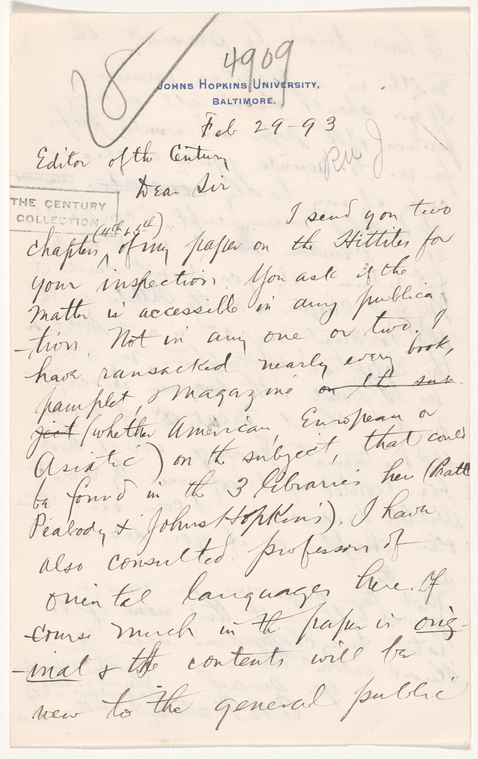 4909
JOHNS HOPKINS UNIVERSITY,
BALTIMORE.
Feb 29-93
Editor of the Century
Dear Sir
THE CENTURY
COLLECTION
I send you two
chapters (4th & 5th) of my paper on the Hittites for
your inspection. You ask if the
matter is accessible in any publica
-tion. Not in any one or two. I
have ransacked nearly every book,
pamplet, & magazine on the sub-
ject (whether American European or
Asiatic) on the subject, that could
be found in the 3 libraries here (Pratt
Peabody & Johns Hopkins). I have
also consulted professors of
oriental languages here. Of
course much in the paper is orig-
-inal & the contents will be
new to the general public